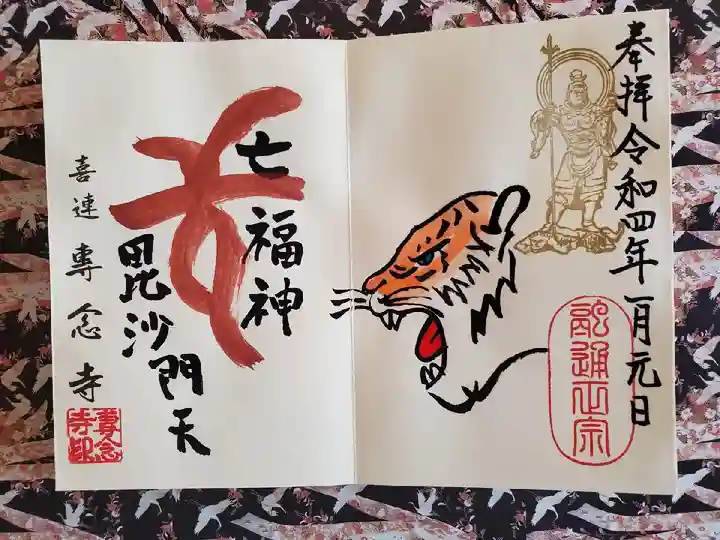 奉拝令和四年一月元日
融通正宗
七福神
毘沙門天
喜連專念寺
專念
寺印